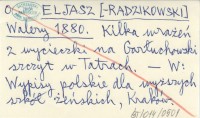 ELJASZ [-RADZIKOWSKI]
Walery 1880. Kilka wrażeń
z wycieczki na Garłuchowski
szczyt w Tatrach. — W:
Wypisy polskie dla wyższych
szkół żeńskich, Kraków.